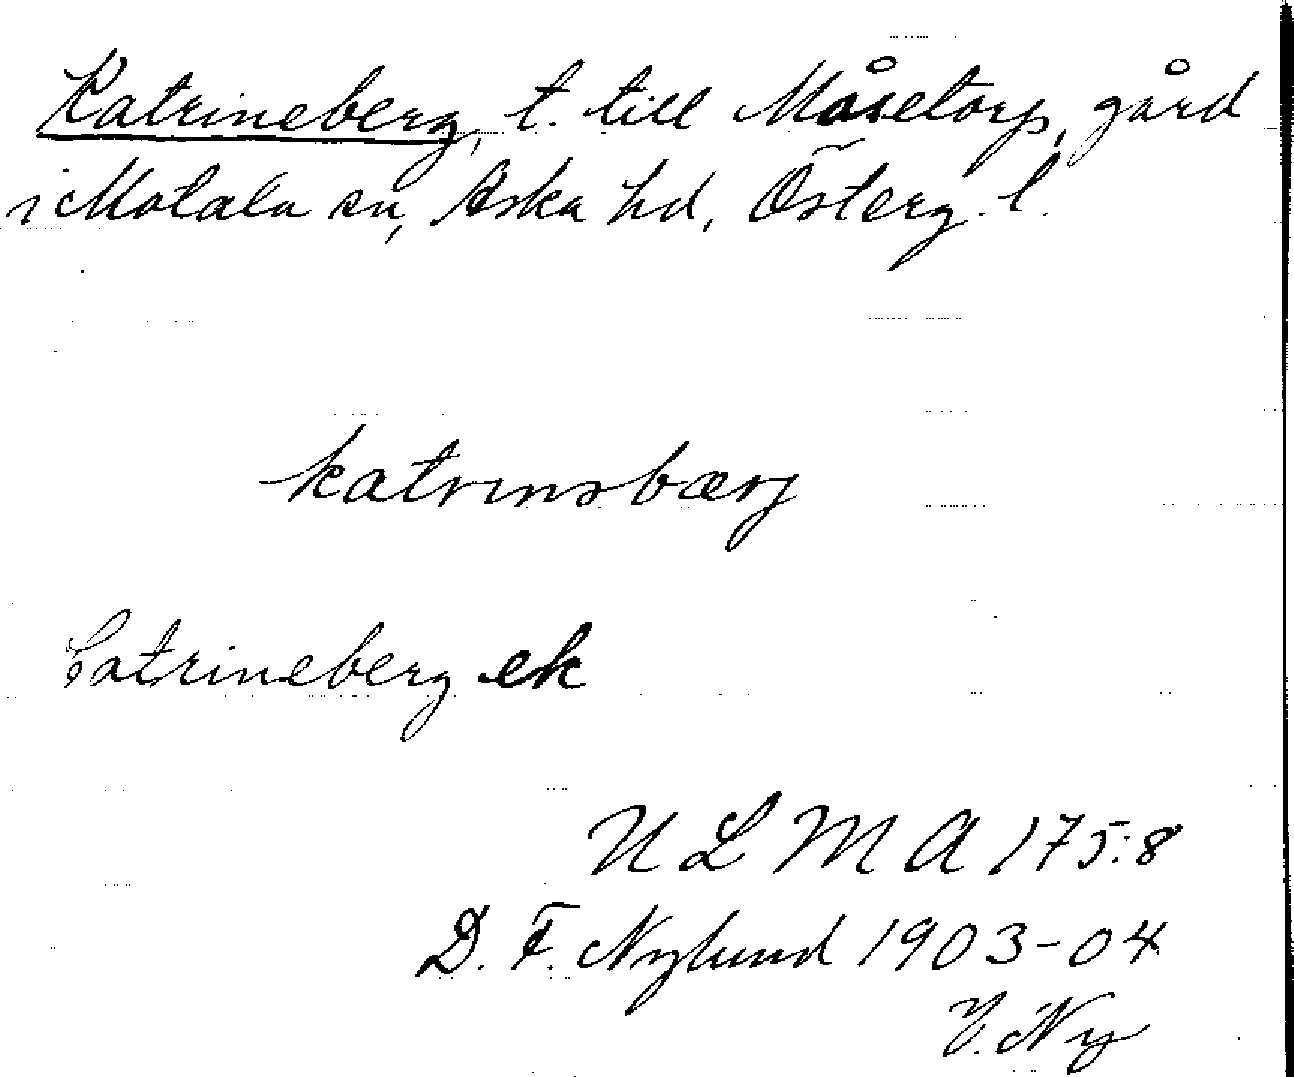 Katrineberg, t. till Måsetorp, gård
i Motala sn, Aska hd, Österg. l.
katrinsbærj
Catrineberg ek
ULMA 175:8
D. F. Nylund 1903-04
V. Ny